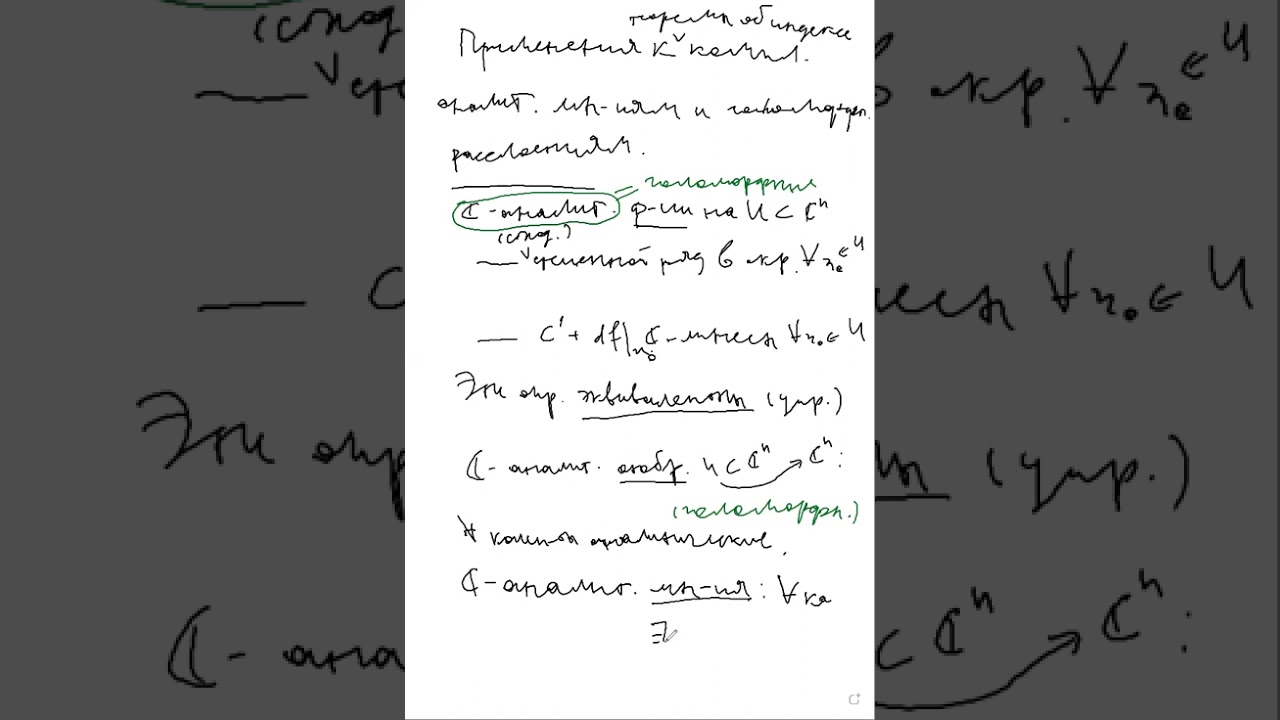 теоремы об индексе
Применения к компл.
аналит. мн-иям и голоморфн.
расслоениям.
= голоморфные
ℂ-аналит. ф-ии на U ⊂ ℂⁿ
(сход.)
— степенной ряд в окр. ∀ x₀ ∈ U
— C¹ + df|ₓ₀ ℂ-линеен ∀ x₀ ∈ U
Эти опр. эквивалентны (упр.)
ℂ-аналит. отобр. U ⊂ ℂⁿ → ℂⁿ:
(голоморфн.)
∀ компон-ты аналитические.
ℂ-аналит. мн-ия: ∀
∃